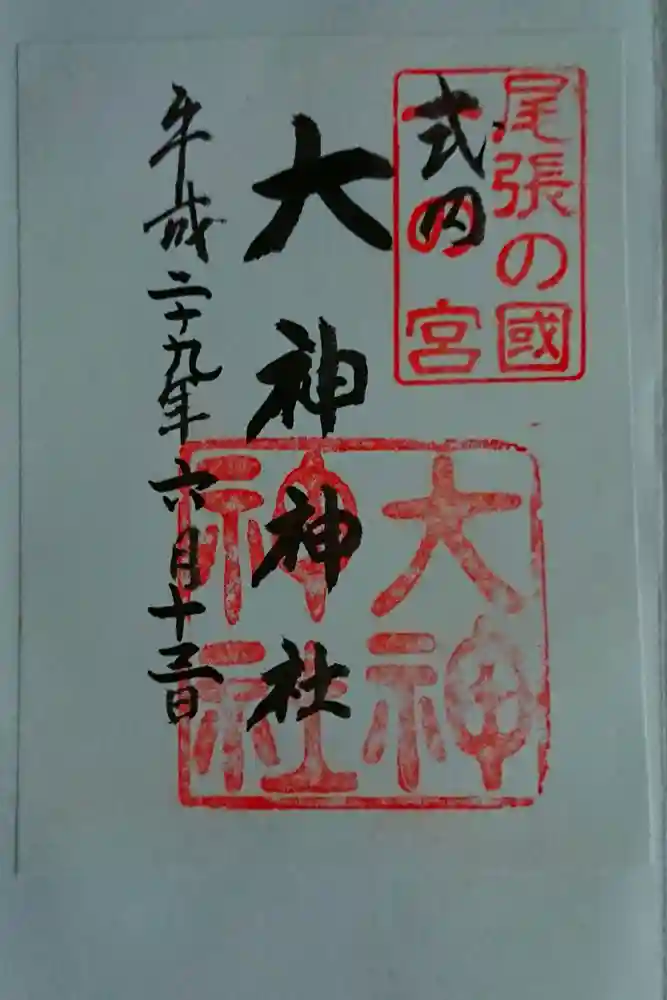 尾張の國
一の宮
式内
大神神社
平成二十九年六月十三日
大神
神社